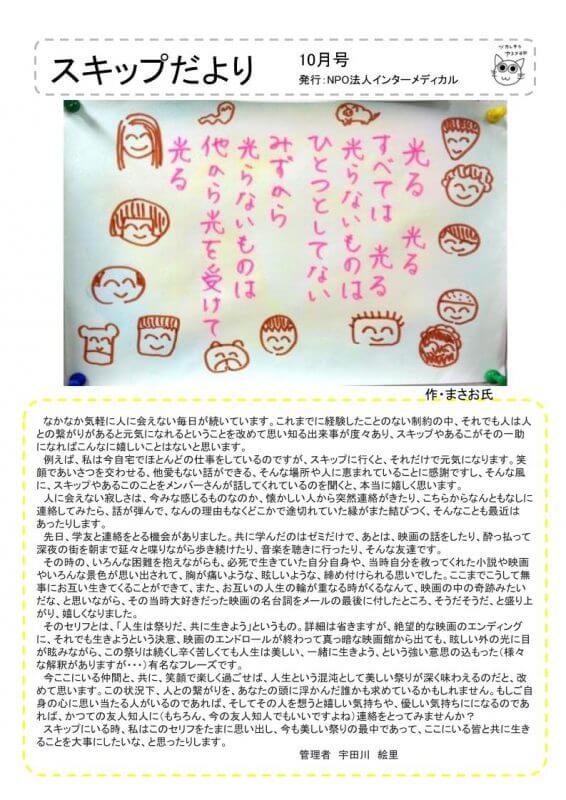 スキップだより
10月号
発行：NPO法人インターメディカル
光る 光る
すべては 光る
光らないものは
ひとつとしてない
みずから
光らないものは
他から光を受けて
光る
作・まさお氏
なかなか気軽に人に会えない毎日が続いています。これまでに経験したことのない制約の中、それでも人は人
との繋がりがあると元気になれるということを改めて思い知る出来事が度々あり、スキップやあるこがその一助
になればこんなに嬉しいことはないと思います。
例えば、私は今自宅でほとんどの仕事をしているのですが、スキップに行くと、それだけで元気になります。笑
顔であいさつを交わせる、他愛もない話ができる、そんな場所や人に恵まれていることに感謝ですし、そんな風
に、スキップやあるこのことをメンバーさんが話してくれているのを聞くと、本当に嬉しく思います。
人に会えない寂しさは、今みな感じるものなのか、懐かしい人から突然連絡がきたり、こちらからなんともなしに
連絡してみたら、話が弾んで、なんの理由もなくどこかで途切れていた縁がまた結びつく、そんなことも最近は
あったりします。
先日、学友と連絡をとる機会がありました。共に学んだのはゼミだけで、あとは、映画の話をしたり、酔っ払って
深夜の街を朝まで延々と喋りながら歩き続けたり、音楽を聴きに行ったり、そんな友達です。
その時の、いろんな困難を抱えながらも、必死で生きていた自分自身や、当時自分を救ってくれた小説や映画
やいろんな景色が思い出されて、胸が痛いような、眩しいような、締め付けられる思いでした。ここまでこうして無
事にお互い生きてくることができてて、また、お互いの人生の輪が重なる時がくるなんて、映画の中の奇跡みたい
だな、と思いながら、その当時大好きだった映画の名台詞をメールの最後に付したところ、そうだそうだ、と盛り上
がり、嬉しくなりました。
そのセリフとは、「人生は祭りだ、共に生きよう」というもの。詳細は省きますが、絶望的な映画のエンディング
に、それでも生きようという決意、映画のエンドロールが終わって真っ暗な映画館から出ても、眩しい外の光に目
が眩みながら、この祭りは続くし辛く苦しくても人生は美しい、一緒に生きよう、という強い意思の込もった（様々
な解釈がありますが・・・）有名なフレーズです。
今ここにいる仲間と、共に、笑顔で楽しく過ごせば、人生という混沌として美しい祭りが深く味わえるのだと、改
めて思います。この状況下、人との繋がりを、あなたの頭に浮かんだ誰かも求めているかもしれません。もしご自
身の心に思い当たる人がいるのであれば、そしてその人を想うと嬉しい気持ちや、優しい気持ちにになるのであ
れば、かつての友人知人に（もちろん、今の友人知人でもいいですよね）連絡をとってみませんか？
スキップにいる時、私はこのセリフをたまに思い出し、今も美しい祭りの最中であって、ここにいる皆と共に生き
ることを大事にしたいな、と思ったりします。
管理者 宇田川 絵里